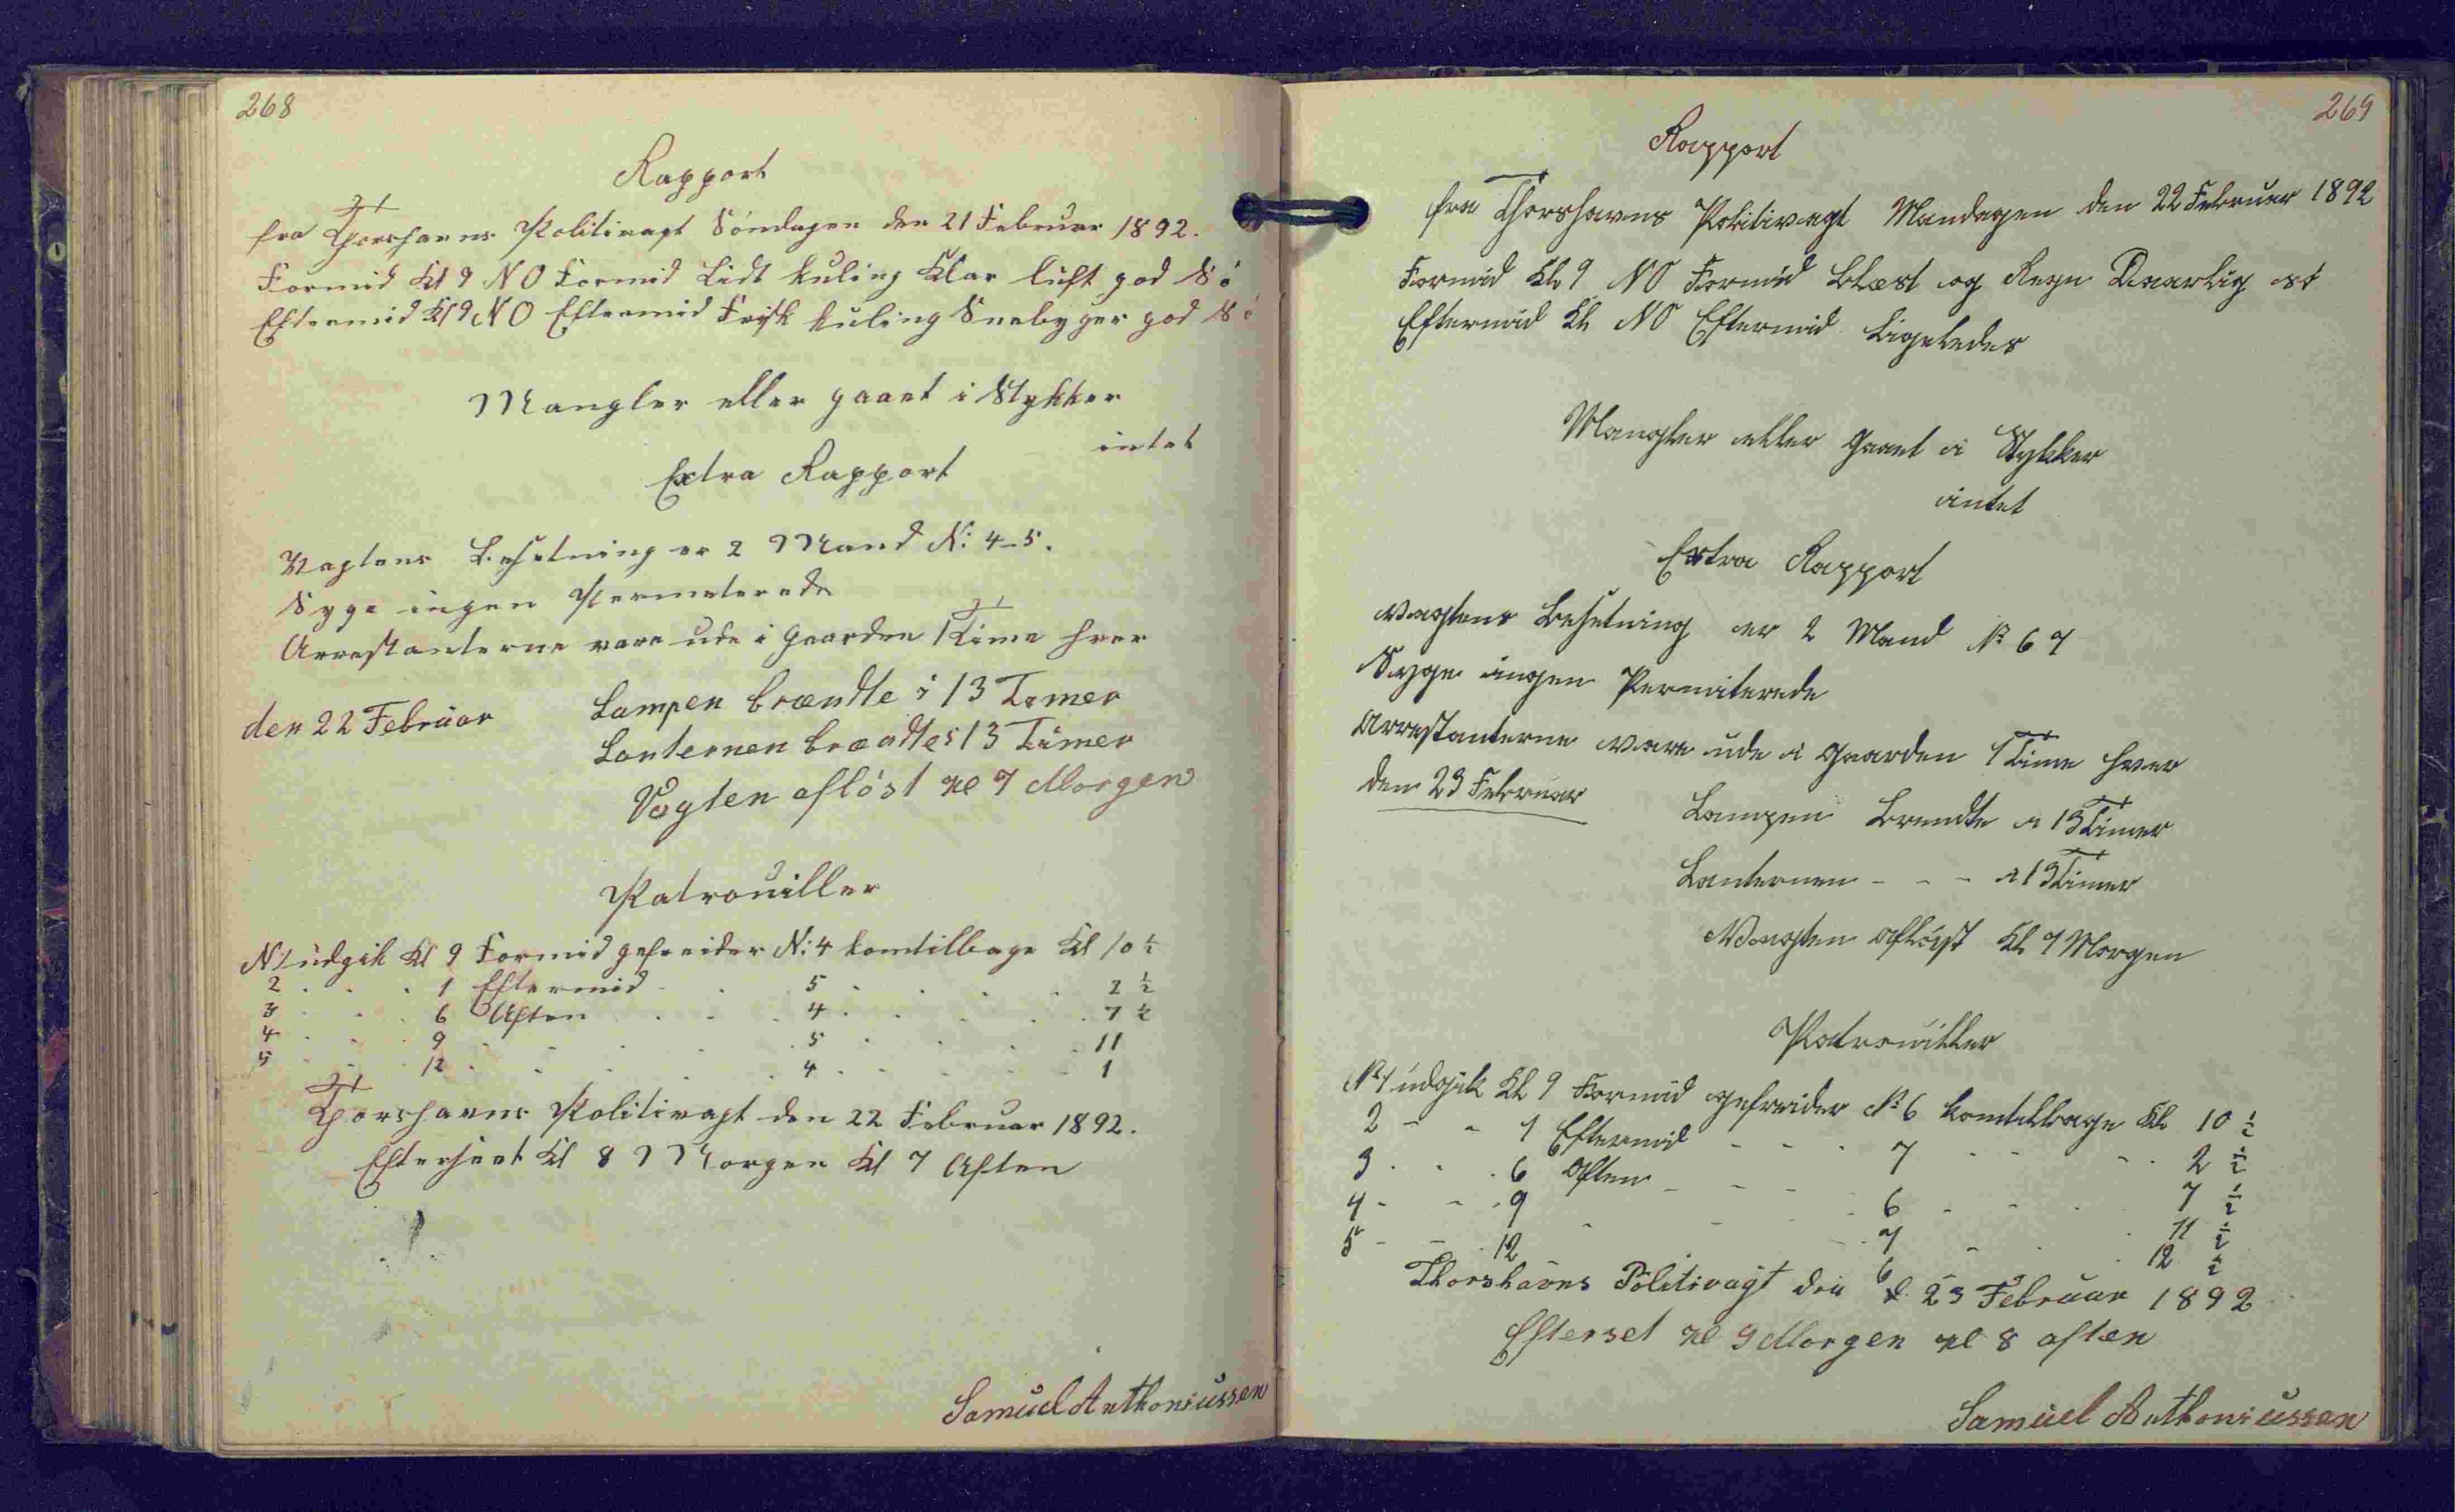 268
Rapport
fra Thorshavns Politivagt Söndagen den 21 Februar 1892.
Formid Kl 9 NO Formid Lidt kuling Klar luft god Sö
Eftermid Kl 9 NO Eftermid Frisk kuling Snebyger god Sö
Mangler eller gaaet i Stykker
intet
Extra Rapport
Vagtens Besetning er 2 Mand N: 4-5.
Syge ingen Permeterede
Arrestanterne vare ude i Gaarden 1 Time hver
den 22 Februar
Lampen brændte i 13 Timer
Lanternen brændte i 13 Timer
Vagten aflöst Kl 7 Morgen
Patrouiller
N: 1 udgik Kl 9 Formid gefreider N: 4 komtilbage Kl 10 ½
2 . . . 1 Eftermid . . 5 . . . . 2 ½
3 . . . 6 Aften . . . 4 . . . . 7 ½
4 . . . 9 . . . . 5 . . . . 11
5 . . . 12 . . . . 4 . . . . 1
Thorshavns Politivagt den 22 Februar 1892.
Efterseet Kl 8 Morgen Kl 7 Aften
Samuel Anthoniussen
269
Rapport
fra Thorshavns Politivagt Mandagen den 22 Februar 1892
Formid Kl 9 NO Formid Blæst og Regn Daarlig sö
Eftermid Kl NO Eftermid Ligeledes
Mangler eller gaaet i Stykker
intet
Extra Rapport
Vagtens Besetning er 2 Mand No 6 7
Syge ingen Permiterede
Arrestanterne vare ude i Gaarden 1 Time hver
den 23 Februar
Lampen Brendte i 13 Timer
Lanternen - - - i 13 Timer
Vagten aflöst Kl 7 Morgen
Patrouiller
No 1 udgik Kl 9 Formid gefreider No 6 komtilbage Kl 10 ½
2 - - 1 Eftermid - - - 7 - - - 2 ½
3 . . . 6 Aften - - - 6 - - 7 ½
4 - - . 9 - - - 7 - . 11 ½
5 - - . 12 6 . 12 ½
Thorshavns Politivagt den d. 23 Februar 1892
Efterset Kl 9 Morgen Kl 8 aften
Samuel Anthoniussen